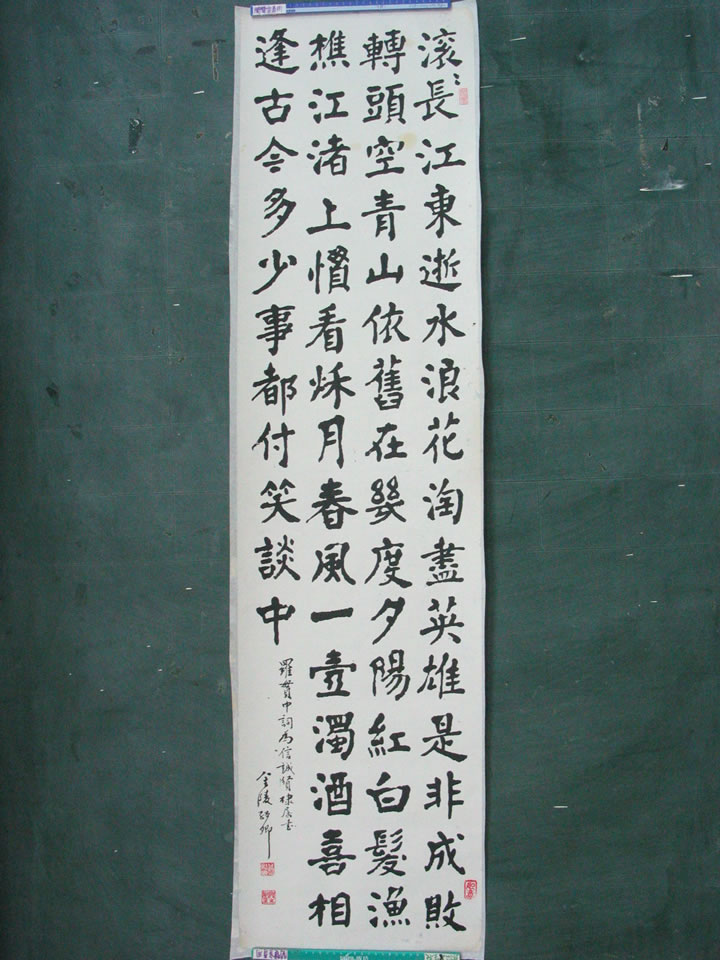 滚〻長江東逝水浪花淘盡英雄是非成敗
轉頭空青山依舊在幾度夕陽紅白髮漁
樵江渚上慣看秌月春風一壺濁酒喜相
逢古今多少事都付笑談中
羅貫中詞為信誠賢棣屬書
金陵卿